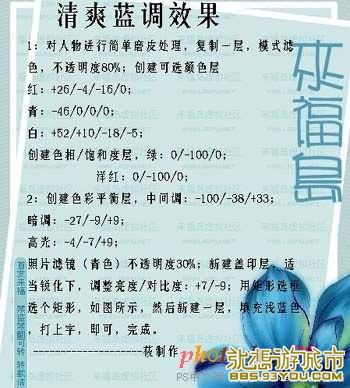 清爽蓝调效果
1：对人物进行简单磨皮处理，复制一层，模式滤
色，不透明度80%；创建可选颜色层
红：+26/-4/-16/0；
青：-46/0/0/0；
白：+52/+10/-18/-5；
创建色相/饱和度层，绿：0/-100/0；
洋红：0/-100/0；
2：创建色彩平衡层，中间调：-100/-38/+33；
暗调：-27/-9/+9；
高光：-4/-7/+9；
照片滤镜（青色）不透明度30%；新建盖印层，适
当锐化下，调整亮度/对比度：+7/-9；用矩形选框
选个矩形，如图所示，然后新建一层，填充浅蓝色
，打上字，即可，完成。
--------------------莜制作--------
来福岛
首发来福 禁盗禁翻可转 转载请
photo
PS
就想游城市
885938YOU.COM